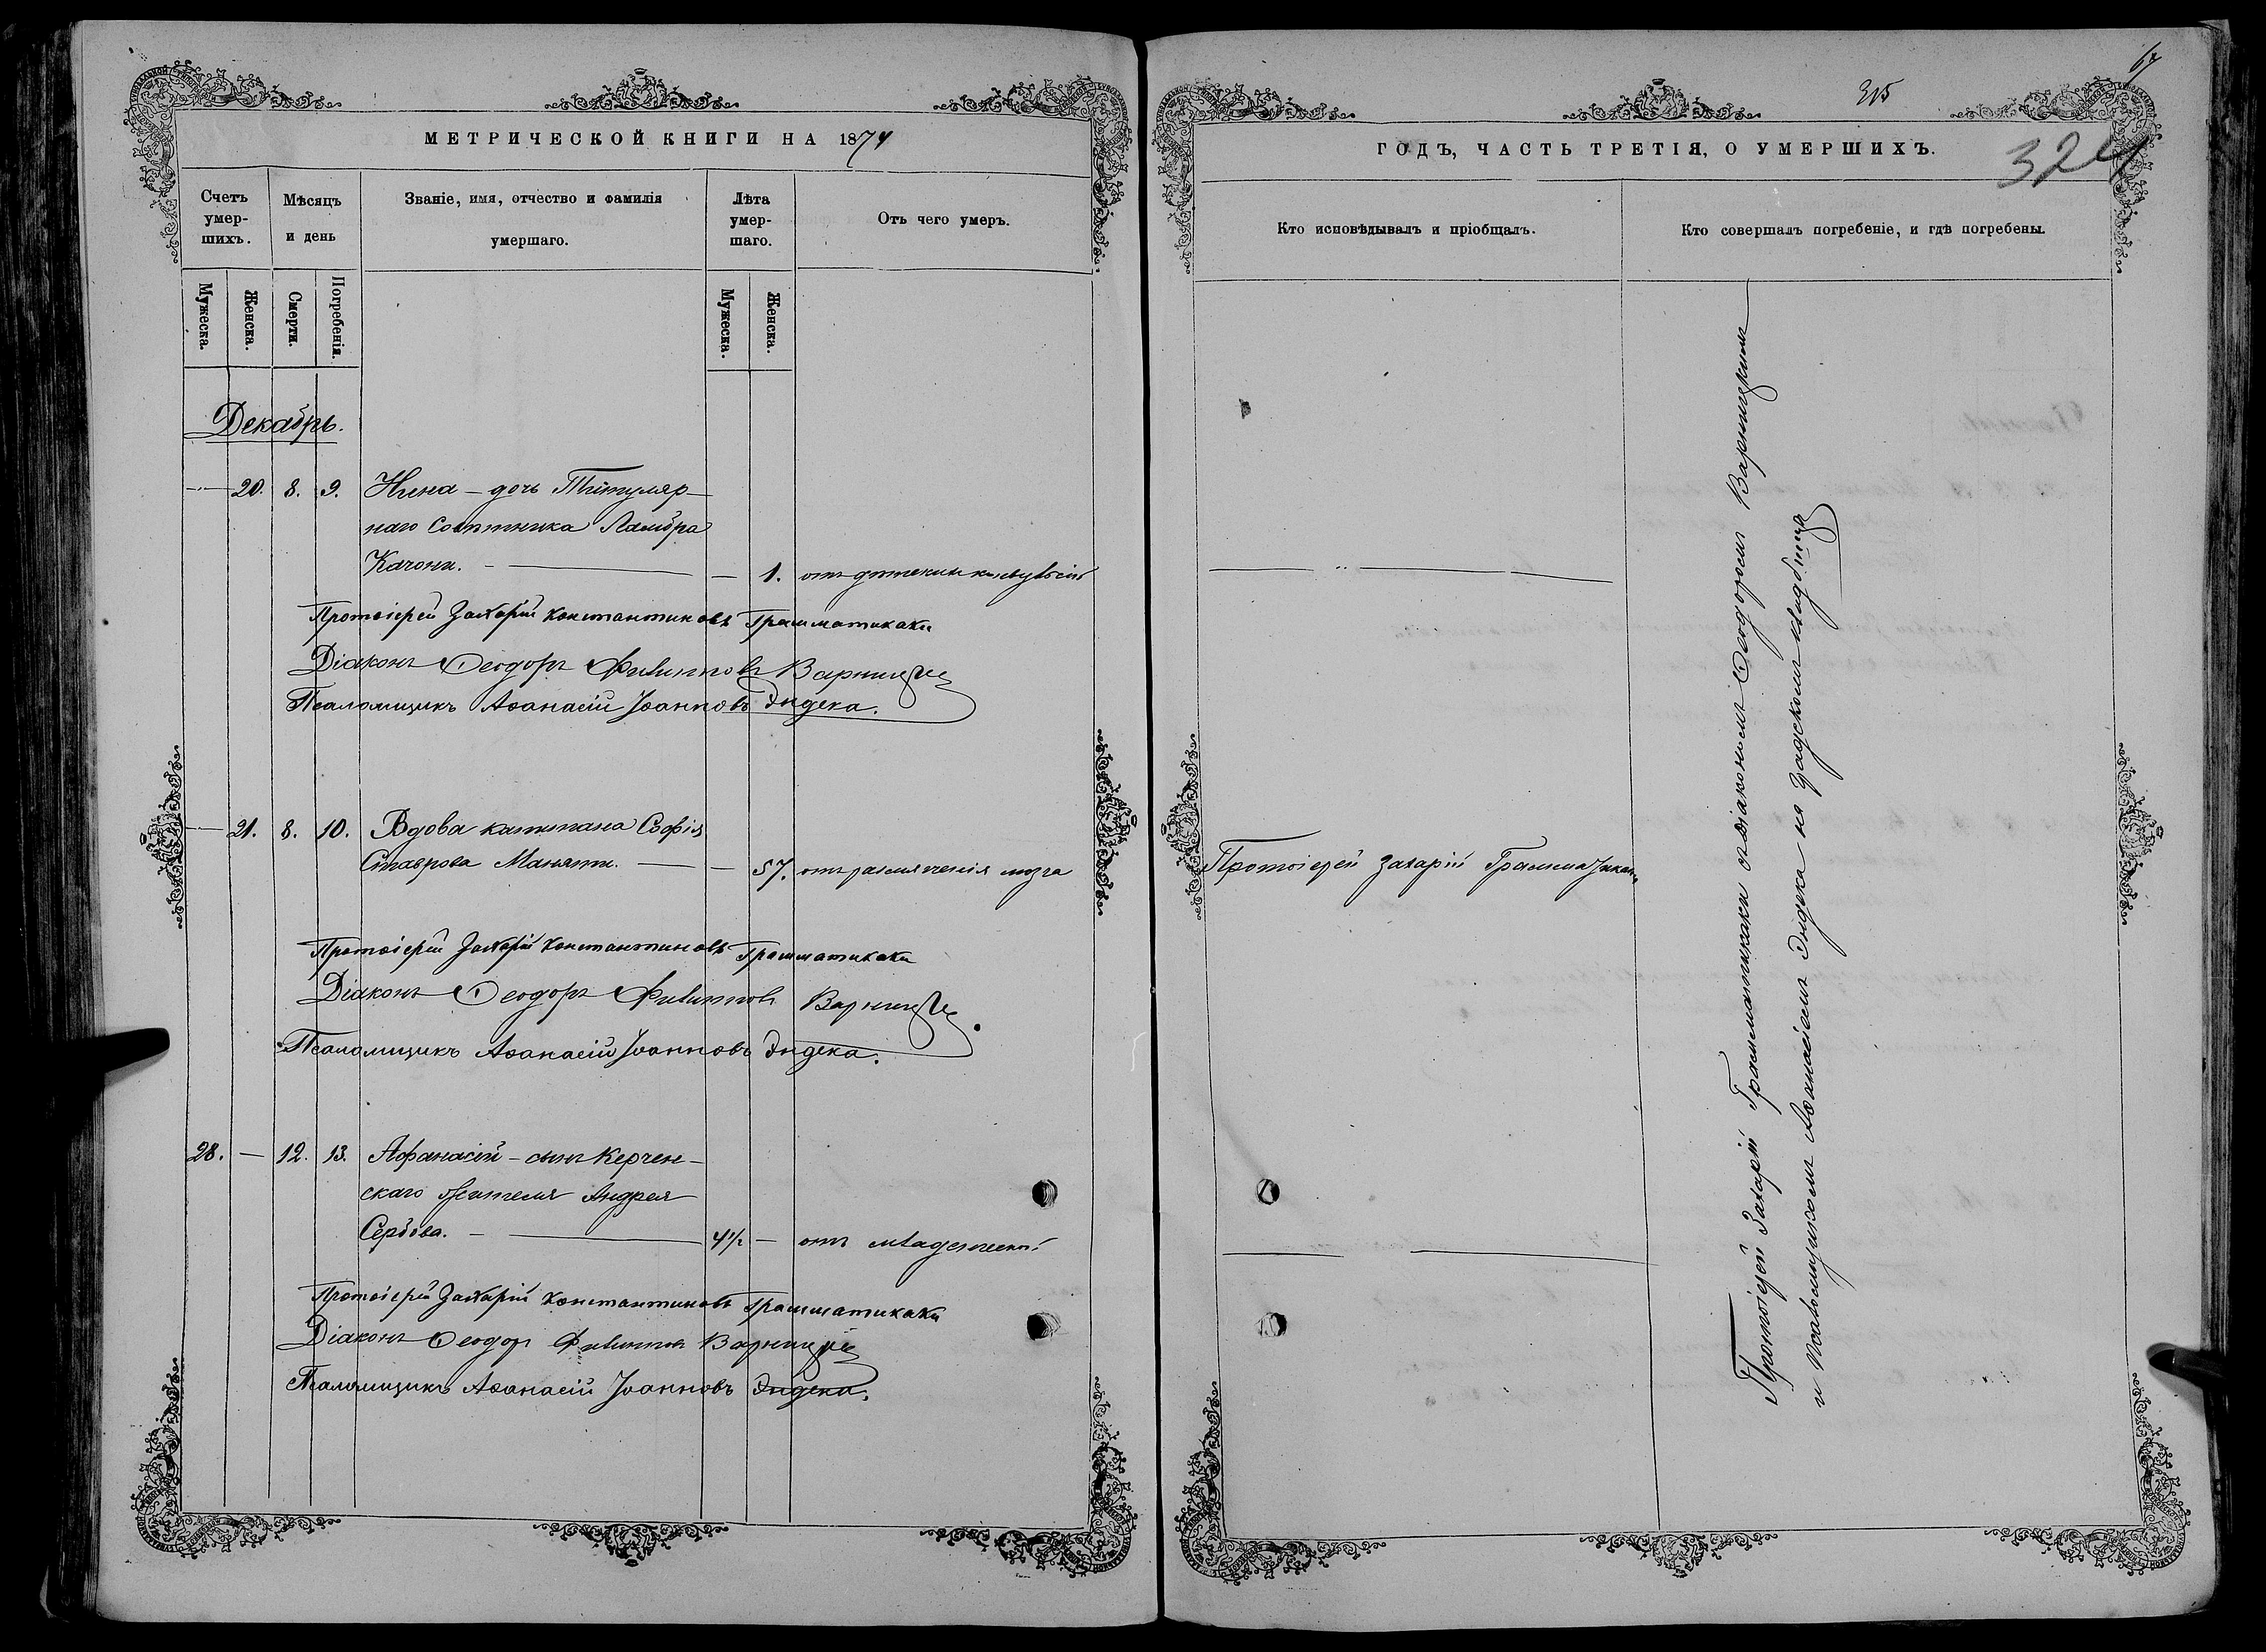 МЕТРИЧЕСКОЙ КНИГИ НА 1874
Счетъ умер-шихъ.
Мѣсяцъ и день
Званіе, имя, отчество и фамилія умершаго.
Лѣта умер-шаго.
Отъ чего умеръ.
Мужеска.
Женска.
Смерти.
Погребенія.
Мужеска.
Женска.
Декабрь.
— 20. 8. 9. Нина – дочь Титуляр-
наго Совѣтника Ламбра
Качони. — — 1. отъ
Протоіерей Захарій Константиновъ Грамматикаки
Діаконъ Ѳеодоръ Филипповъ Варницкій
Псаломщикъ Аѳанасій Іоанновъ Эндека.
— 21. 8. 10. Вдова капитана Софія
Ставрова Маняти. — — 57. отъ размягченія мозга
Протоіерей Захарій Константиновъ Грамматикаки
Діаконъ Ѳеодоръ Филипповъ Варницкій
Псаломщикъ Аѳанасій Іоанновъ Эндека.
28. — 12. 13. Афанасій – сынъ Керчен-
скаго жителя Андрея
Сербова. — 4½ — отъ младенческой
Протоіерей Захарій Константиновъ Грамматикаки
Діаконъ Ѳеодоръ Филипповъ Варницкій
Псаломщикъ Аѳанасій Іоанновъ Эндека.
67
315
324
ГОДЪ, ЧАСТЬ ТРЕТІЯ, О УМЕРШИХЪ.
Кто исповѣдывалъ и пріобщалъ.
Кто совершалъ погребеніе, и гдѣ погребены.
— " —
Протоіерей Захарій Грамматикаки
Протоіерей Захарій Грамматикаки съ діакономъ Ѳеодоромъ Варницкимъ
и псаломщикомъ Аѳанасіемъ Эндека на Градскомъ кладбищѣ